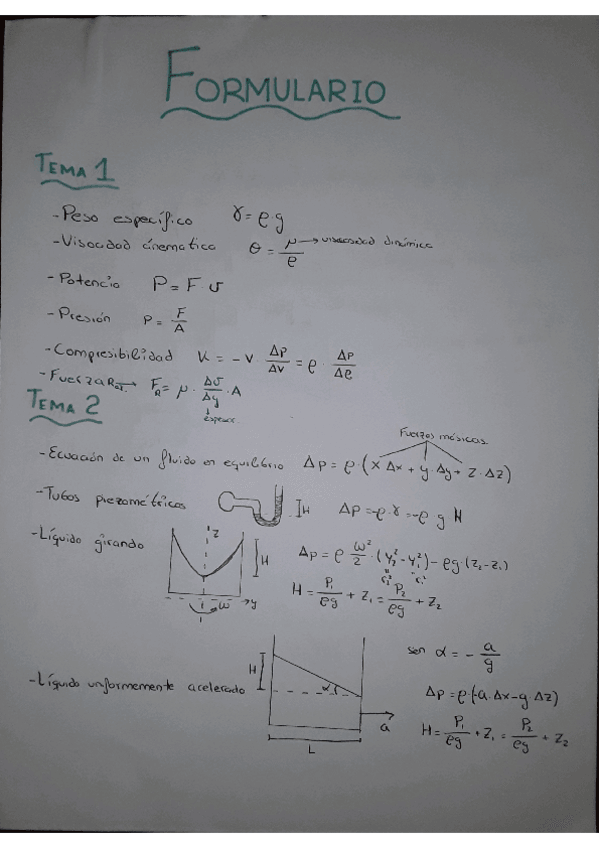 FORMULARIO
TEMA 1
-Peso específico γ = ρ·g
-Viscocidad cinematica θ = μ/ρ → viscosidad dinámica
-Potencia P = F·v
-Presión P = F/A
-Compresibilidad K = -V · Δp/ΔV = ρ · Δp/Δρ
-Fuerza Roz. → F_R = μ · Δv/Δy · A
espesor
TEMA 2
Fuerzas másicas
-Ecuación de un fluido en equilibrio Δp = ρ·(x Δx + y·Δy + z·Δz)
-Tubos piezométricos H Δp = -ρ·γ = -ρ·g H
-Líquido girando z H Δp = ρ ω²/2 · (y₂² - y₁²) - ρg·(z₂ - z₁)
r₂² r₁²
H = P₁/ρg + z₁ = P₂/ρg + z₂
ω y
sen α = - a/g
-Líquido uniformemente acelerado H α Δp = ρ(-a·Δx - g·Δz)
a H = P₁/ρg + z₁ = P₂/ρg + z₂
L